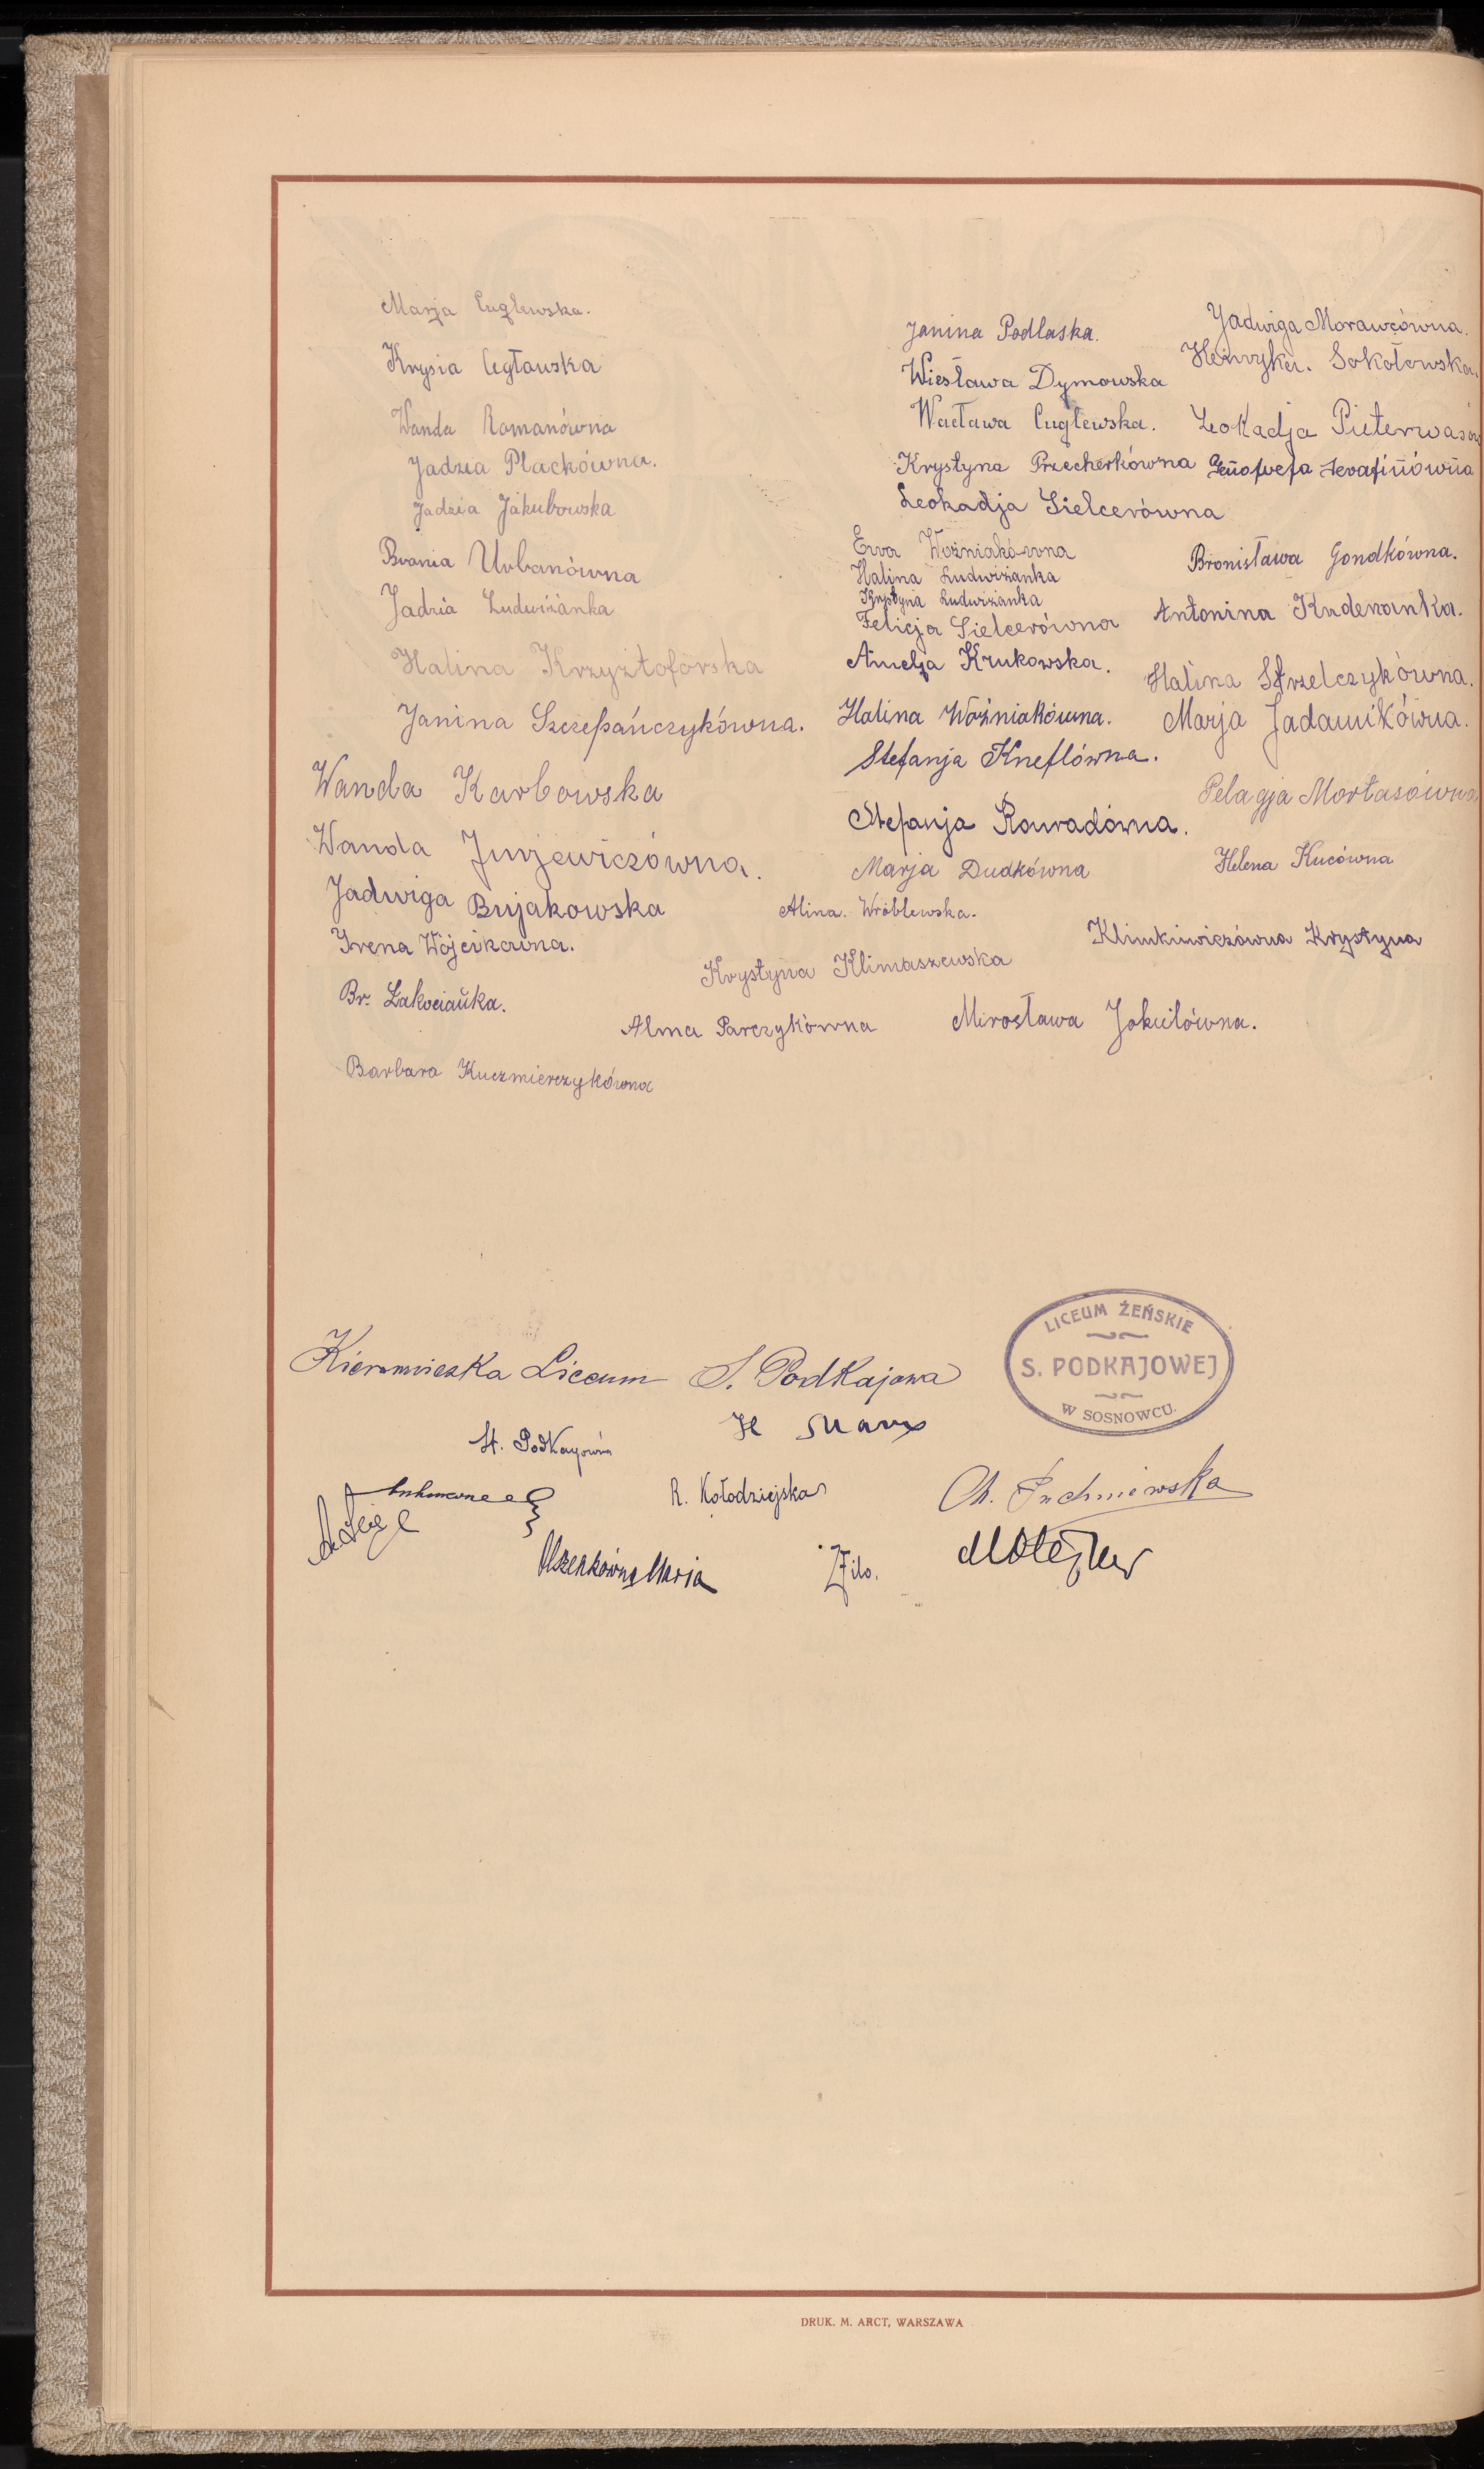 Marja Cuglewska.
Krysia Cegławska
Wanda Romanówna
Jadzia Plackówna.
Jadzia Jakubowska
Brania Urbanówna
Jadzia Ludwiżanka
Halina Krzyztoforska
Janina Szczepańczykówna.
Wanda Karbowska
Wanda Jurjewiczówna.
Jadwiga Bujakowska
Irena Wójcikówna.
Br. Żakocianka.
Barbara Kuczmierczykówna
Janina Podlaska.
Wiesława Dymowska
Wacława Cuglewska.
Krystyna Przecherkówna
Leokadja Sielcerówna
Ewa Woźniakówna
Halina Ludwiżanka
Krystyna Ludwiżanka
Felicja Sielcerówna
Amelja Krukowska.
Halina Woźniakówna.
Stefanja Kneflówna.
Stefanja Rowadówna.
Marja Dudkówna
Alina. Wróblewska.
Krystyna Klimaszewska
Alma Parczykówna
Jadwiga Morawcówna.
Henryka. Sokołowska.
Leokadja Pieterwasów
Genowefa Serafinówna
Bronisława Gondkówna.
Antonina Kuderanka.
Halina Strzelczykówna.
Marja Jadamikówna.
Pelagja Mortasówna
Helena Kucówna
Klimkiewiczówna Krystyna
Mirosława Jokielówna.
Kierowniczka Liceum S. Podkajowa
LICEUM ŻEŃSKIE
S. PODKAJOWEJ
W SOSNOWCU.
H.
St. Podkajówna
R. Kołodziejska
Ch. Puchniewska
Olszenkówna Marja
DRUK. M. ARCT, WARSZAWA